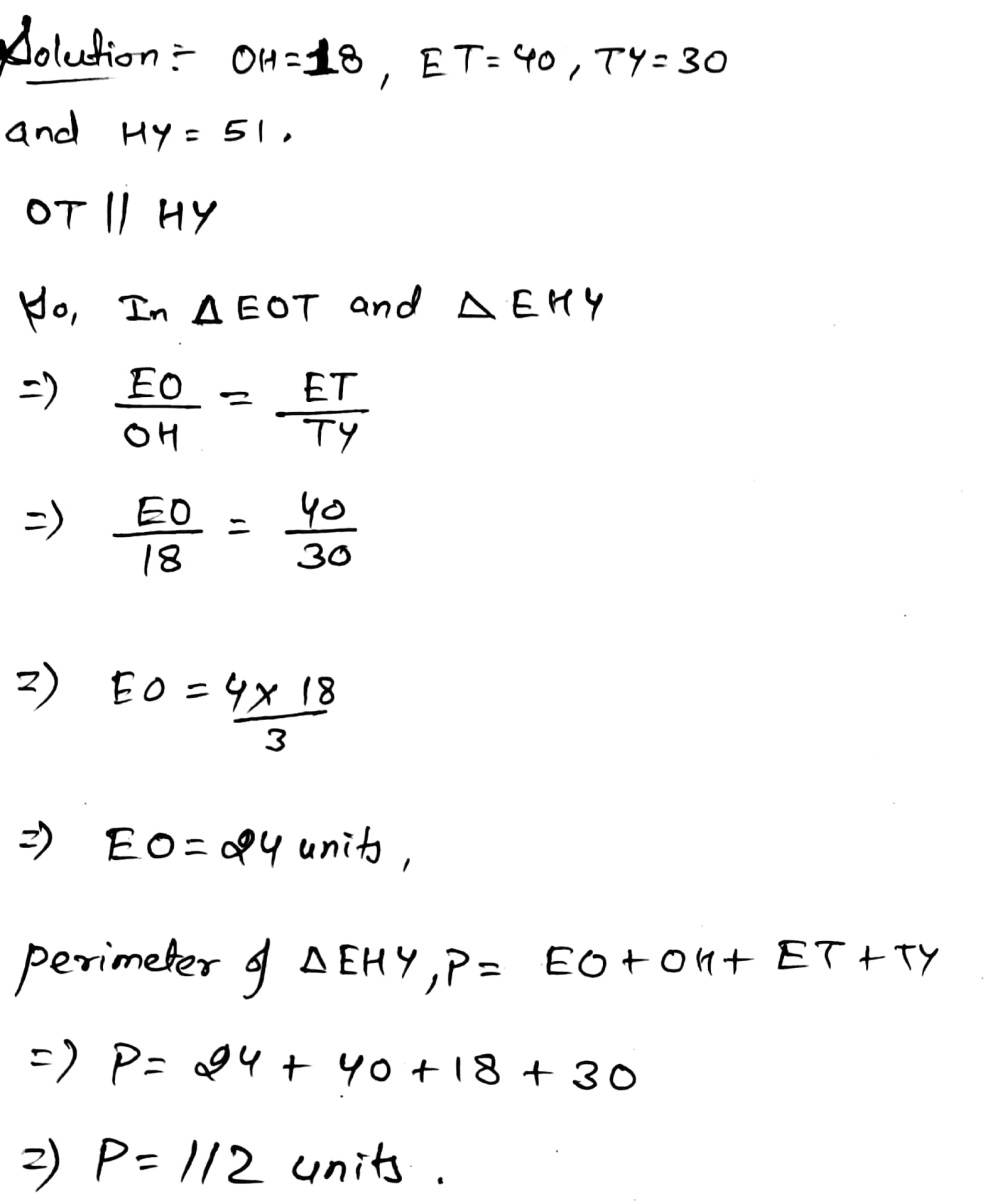 Solution :- OH=18, ET=40, TY=30
and HY = 51.
OT || HY
So, In Δ EOT and Δ EHY
=> EO/OH = ET/TY
=> EO/18 = 40/30
=> EO = 4x 18/3
=> EO = 24 units,
perimeter of Δ EHY, P = EO + OH + ET + TY
=> P = 24 + 40 + 18 + 30
=> P = 112 units.